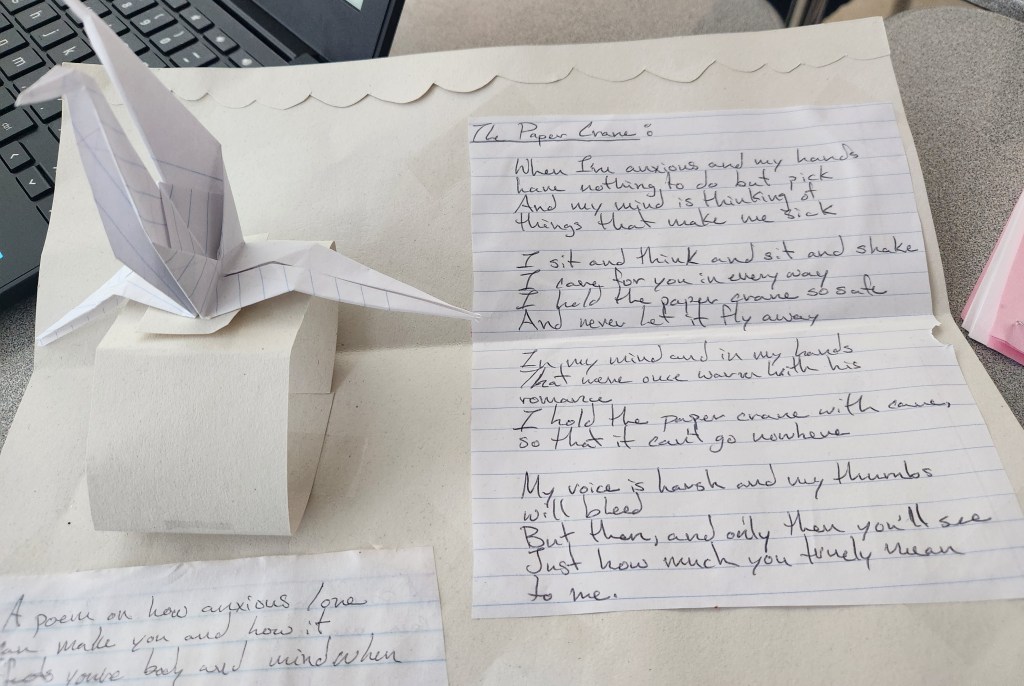 The Paper Crane:
When I'm anxious and my hands
have nothing to do but pick
And my mind is thinking of
things that make me sick
I sit and think and sit and shake
I care for you in every way
I hold the paper crane so safe
And never let it fly away
In my mind and in my hands
That were once warm with his
romance
I hold the paper crane with care,
so that it can't go nowhere
My voice is harsh and my thumbs
will bleed
But then, and only then you'll see
Just how much you truely mean
to me.
A poem on how anxious love
can make you and how it
body and mind when